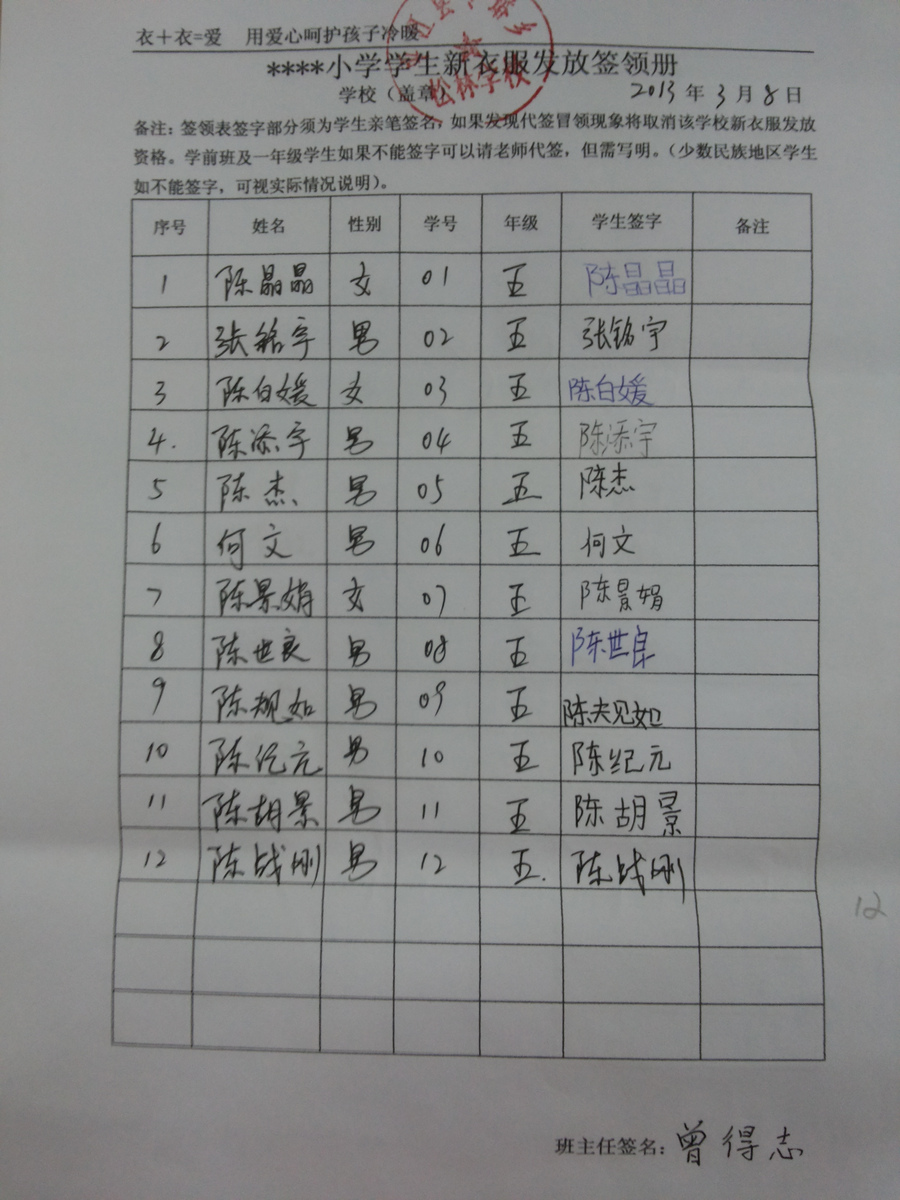 衣+衣=爱 用爱心呵护孩子冷暖
****小学学生新衣服发放签领册
学校（盖章） 2013年3月8日
松林学校
备注：签领表签字部分须为学生亲笔签名，如果发现代签冒领现象将取消该学校新衣服发放
资格。学前班及一年级学生如果不能签字可以请老师代签，但需写明。（少数民族地区学生
如不能签字，可视实际情况说明）。
序号 姓名 性别 学号 年级 学生签字 备注
1 陈晶晶 女 01 五 陈晶晶
2 张铭宇 男 02 五 张铭宇
3 陈白媛 女 03 五 陈白媛
4. 陈添宇 男 04 五 陈添宇
5 陈杰 男 05 五 陈杰
6 何文 男 06 五 何文
7 陈景娟 女 07 五 陈景娟
8 陈世良 男 08 五 陈世良
9 陈规如 男 09 五 陈规如
10 陈纪元 男 10 五 陈纪元
11 陈胡景 男 11 五 陈胡景
12 陈战刚 男 12 五. 陈战刚
12
班主任签名：曾得志